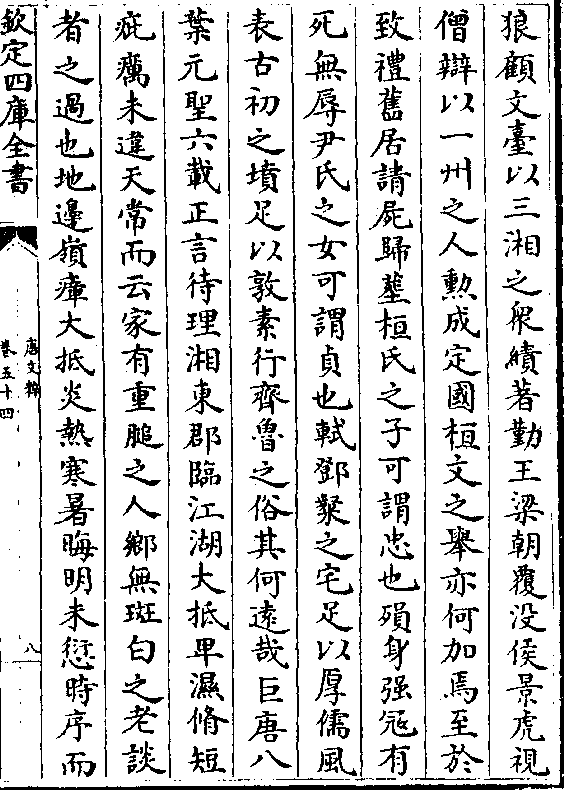 狼顧文臺以三湘之衆績著勤王梁朝覆没侯景虎視
僧辯以一州之人勲成定國桓文之舉亦何加焉至於
致禮舊居請屍歸塟桓氏之子可謂忠也殞身强冦有
死無辱尹氏之女可謂貞也軾鄧粲之宅足以厚儒風
表古初之墳足以敦素行齊魯之俗其何逺哉巨唐八
葉元聖六載正言待理湘東郡臨江湖大抵卑濕脩短
疵癘未違天常而云家有重膇之人鄉無斑白之老談
者之過也地邊嶺瘴大抵炎熱寒暑晦明未愆時序而
欽定四庫全書
唐文粹
卷五十四
八